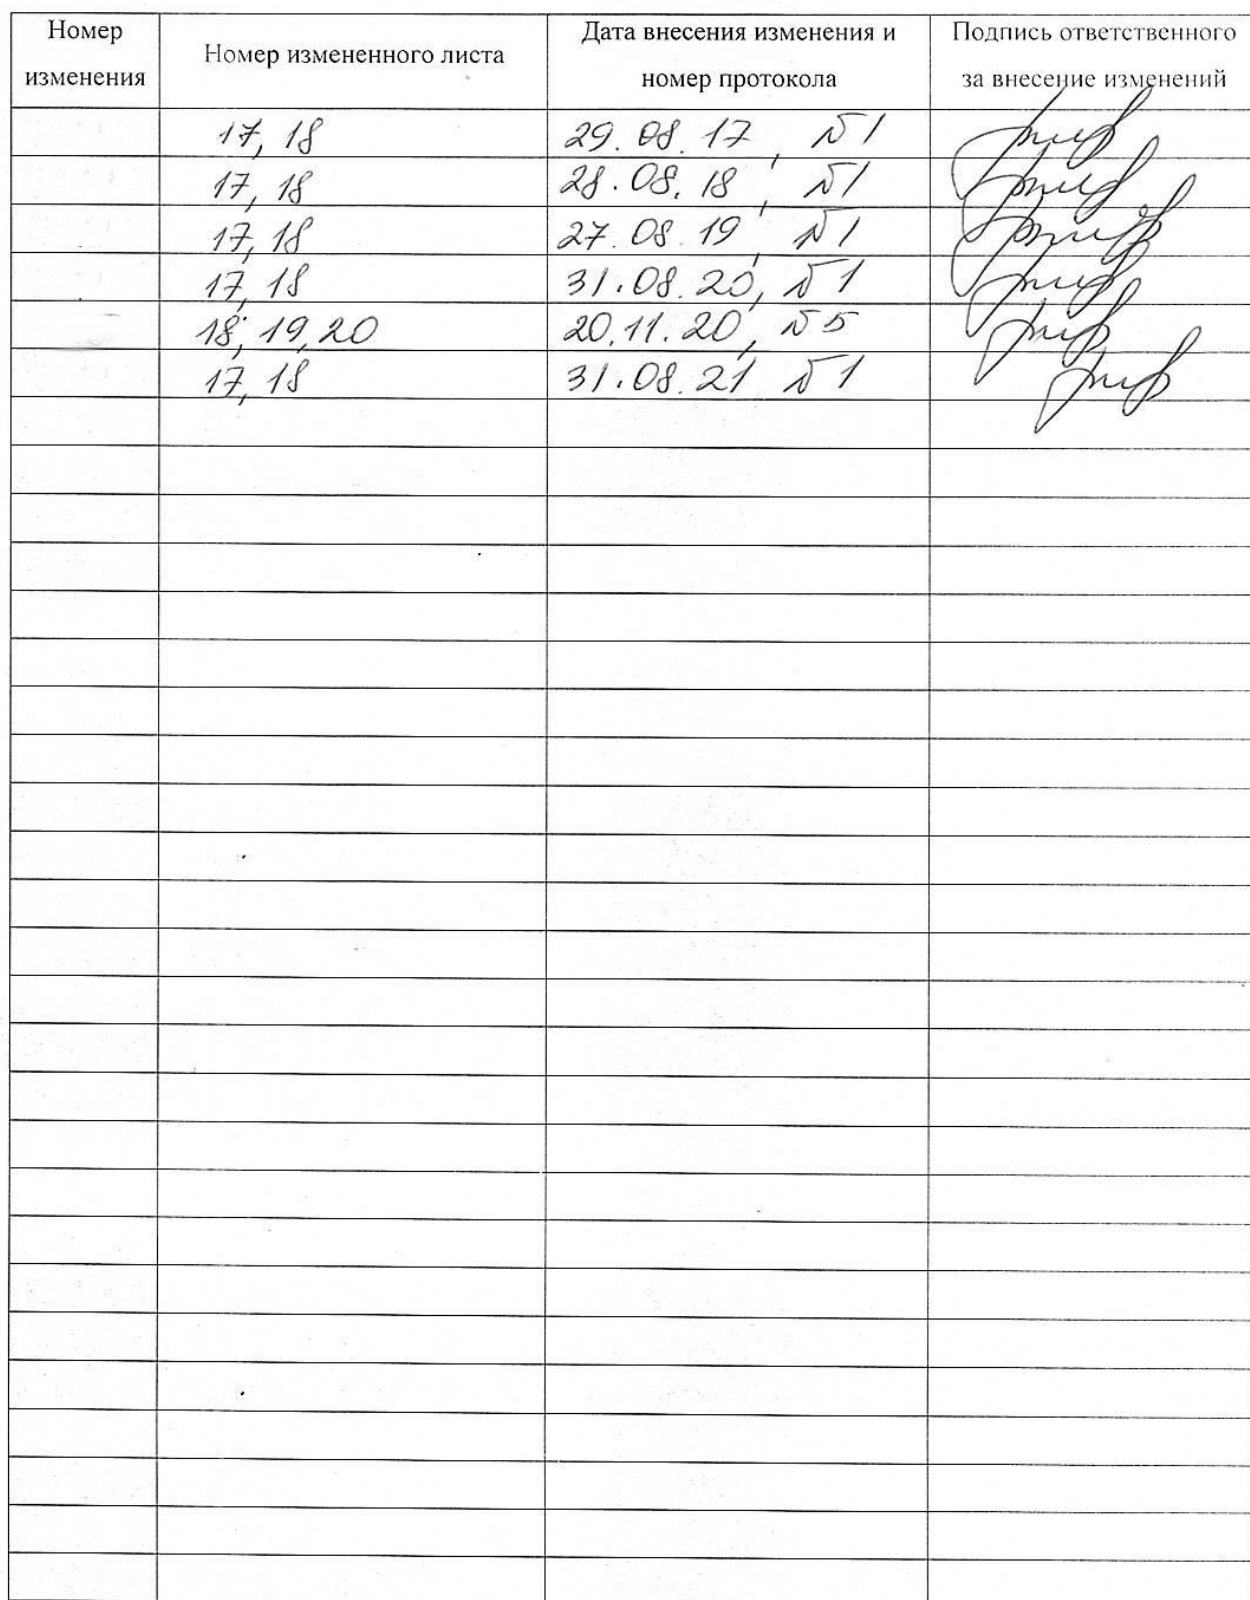 Номер изменения
Номер измененного листа
Дата внесения изменения и номер протокола
Подпись ответственного за внесение изменений
17, 18 29.08.17, №1
17, 18 28.08.18, №1
17, 18 27.08.19, №1
17, 18 31.08.20, №1
18, 19, 20 20.11.20, №5
17, 18 31.08.21 №1